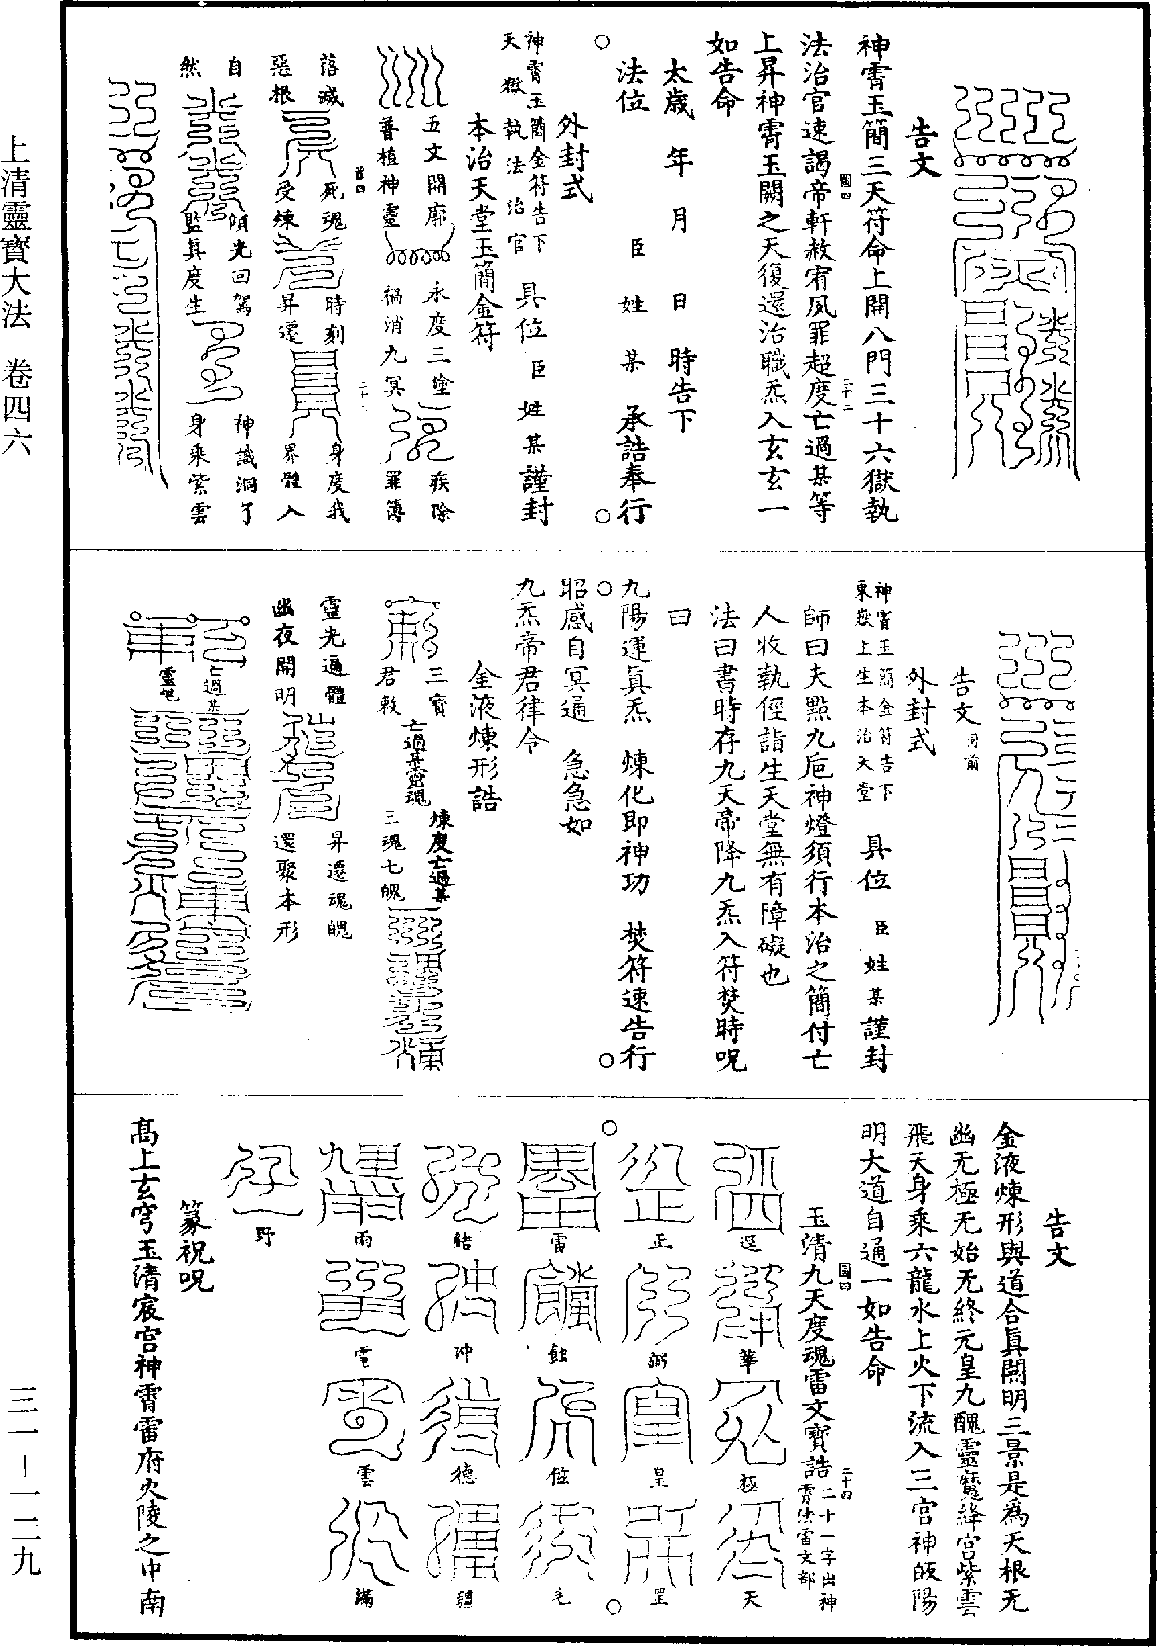 告文
神霄玉簡三天符命上開八門三十六獄執
法治官速謁帝軒赦宥夙罪超度亡過某等
上昇神霄玉闕之天復還治職炁入玄玄一
如告命
太歲 年 月 日 時告下
法位 臣 姓 某 承誥奉行
外封式
神霄玉簡金符告下
天獄執法治官 具位 臣 姓 某 謹封
本治天堂玉簡金符
五文開廓
普植神靈
永度三塗
禍消九冥
疾除
罪簿
落滅
惡根
死魂
受煉
時刻
昇遷
身度我
界體入
自
然
傾光回駕
監真度生
神識洞了
身乘紫雲
告文同前
外封式
神霄玉簡金符告下
東嶽上生本治天堂 具位 臣 姓 某 謹封
師曰夫點九巵神燈須行本治之簡付亡
人收執徑詣生天堂無有障礙也
法曰書時存九天帝降九炁入符焚時呪
曰
九陽運真炁 煉化即神功 焚符速告行
昭感自冥通 急急如
九炁帝君律令
金液煉形誥
三寶
君敕
亡過某靈魂
煉度亡過某
三魂七魄
靈光遍體
幽夜開明
昇遷魂魄
還聚本形
亡過某
靈邑
告文
金液煉形與道合真開明三景是為天根无
幽无極无始无終元皇九醜靈魔絳宮紫雲
飛天身乘六龍水上火下流入三宮神皈陽
明大道自通一如告命
玉清九天度魂雷文寶誥二十一字出神霄法雷文部
逕 華 極 天
正 粥 皇 罡
雷 蝕 位 毛
皓 沖 德 疆
雨 電 雲 滿
野
篆祝呪
高上玄穹玉清宸宮神霄雷府火陵之中南
上清靈寶大法 卷四六
三一—一二九